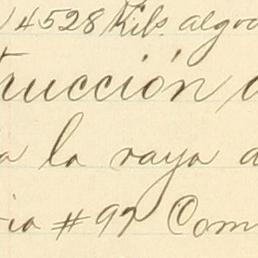 14528 Kils. algo
trucción d
a la raya d
ia #97 Com